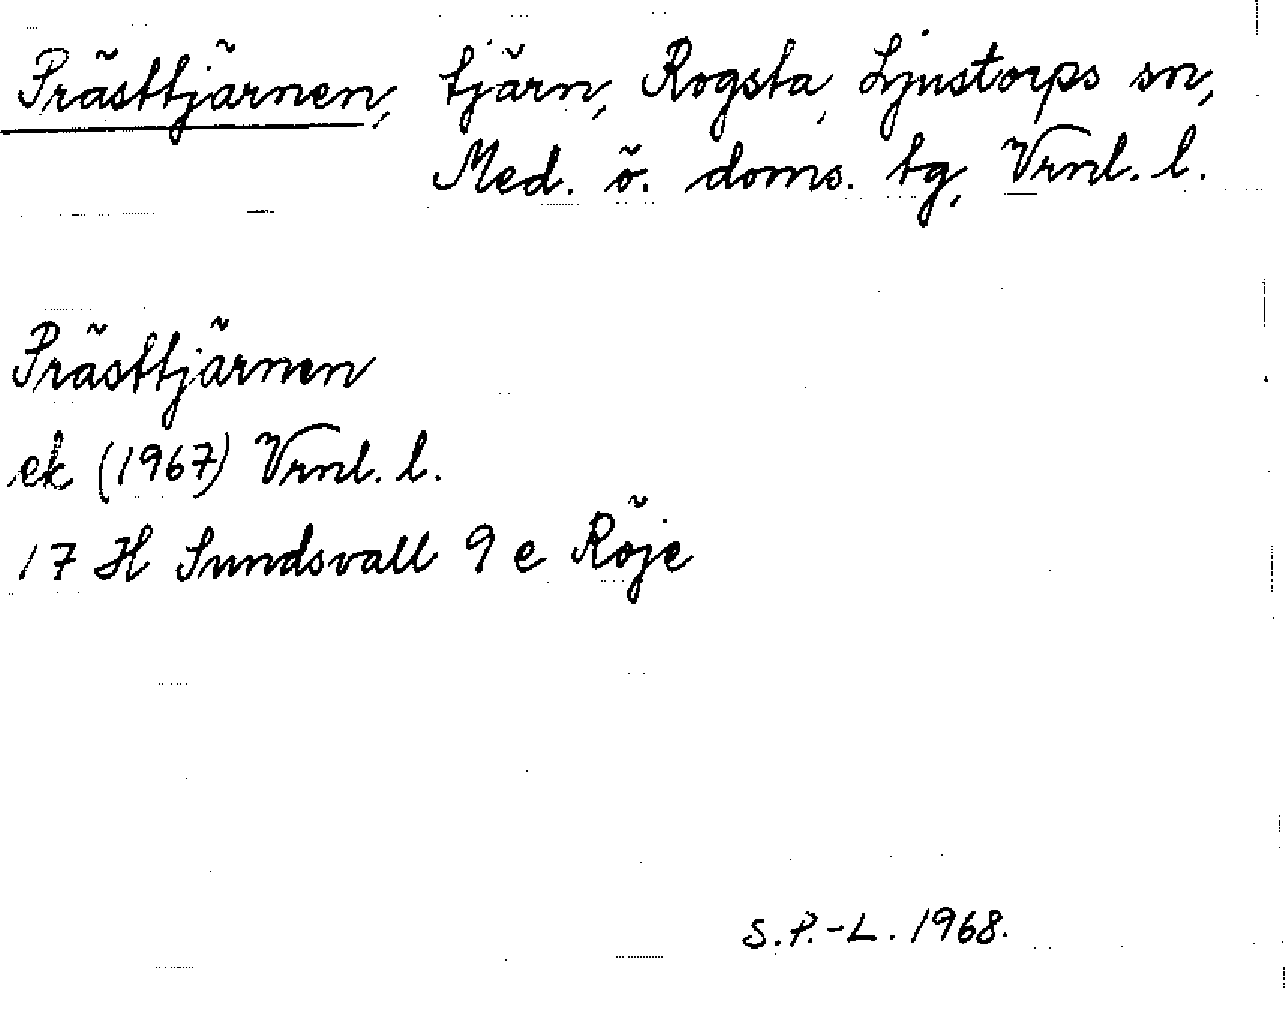 Prästtjärnen, tjärn, Rogsta, Ljustorps sn,
Med. ö. doms. tg, Vrnl. l.
Prästtjärnen
ek (1967) Vrnl. l.
17 H Sundsvall 9 e Röje
S.P.-L. 1968.